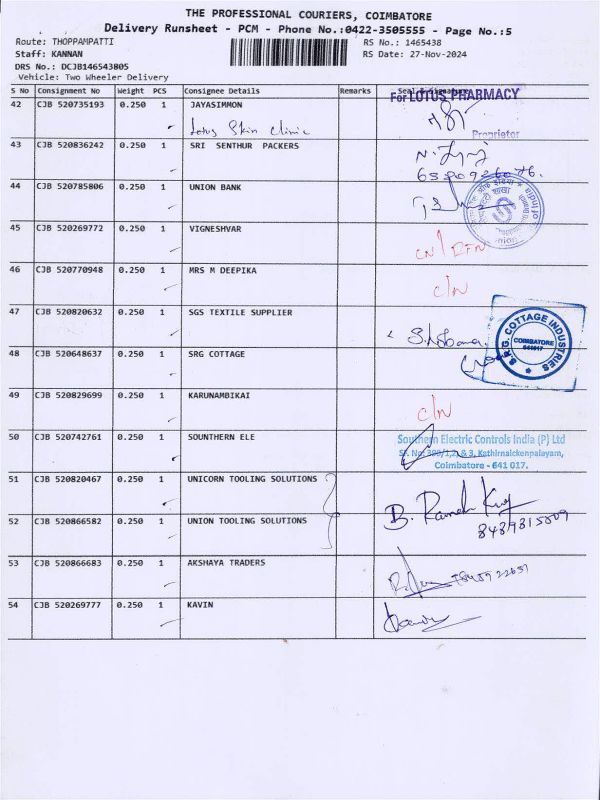 THE PROFESSIONAL COURIERS, COIMBATORE
Delivery Runsheet - PCM - Phone No.:0422-3505555 - Page No.:5
Route: THOPPAMPATTI RS No.: 1465438
Staff: KANNAN RS Date: 27-Nov-2024
DRS No.: DCJB146543805
Vehicle: Two Wheeler Delivery
S No Consignment No Weight PCS Consignee Details Remarks
42 CJB 520735193 0.250 1 JAYASIMMON For LOTUS PHARMACY
Lotus Skin Clinic
Proprietor
43 CJB 520836242 0.250 1 SRI SENTHUR PACKERS
44 CJB 520785806 0.250 1 UNION BANK
45 CJB 520269772 0.250 1 VIGNESHVAR
46 CJB 520770948 0.250 1 MRS M DEEPIKA
C/N
47 CJB 520820632 0.250 1 SGS TEXTILE SUPPLIER
S.R.G. COTTAGE INDUSTRIES
COIMBATORE
641017
48 CJB 520648637 0.250 1 SRG COTTAGE
49 CJB 520829699 0.250 1 KARUNAMBIKAI
C/N
50 CJB 520742761 0.250 1 SOUNTHERN ELE
Southern Electric Controls India (P) Ltd
SF. No: 390/1,2, & 3, Kathirnaickenpalayam,
Coimbatore - 641 017.
51 CJB 520820467 0.250 1 UNICORN TOOLING SOLUTIONS
52 CJB 520866582 0.250 1 UNION TOOLING SOLUTIONS
53 CJB 520866683 0.250 1 AKSHAYA TRADERS
54 CJB 520269777 0.250 1 KAVIN